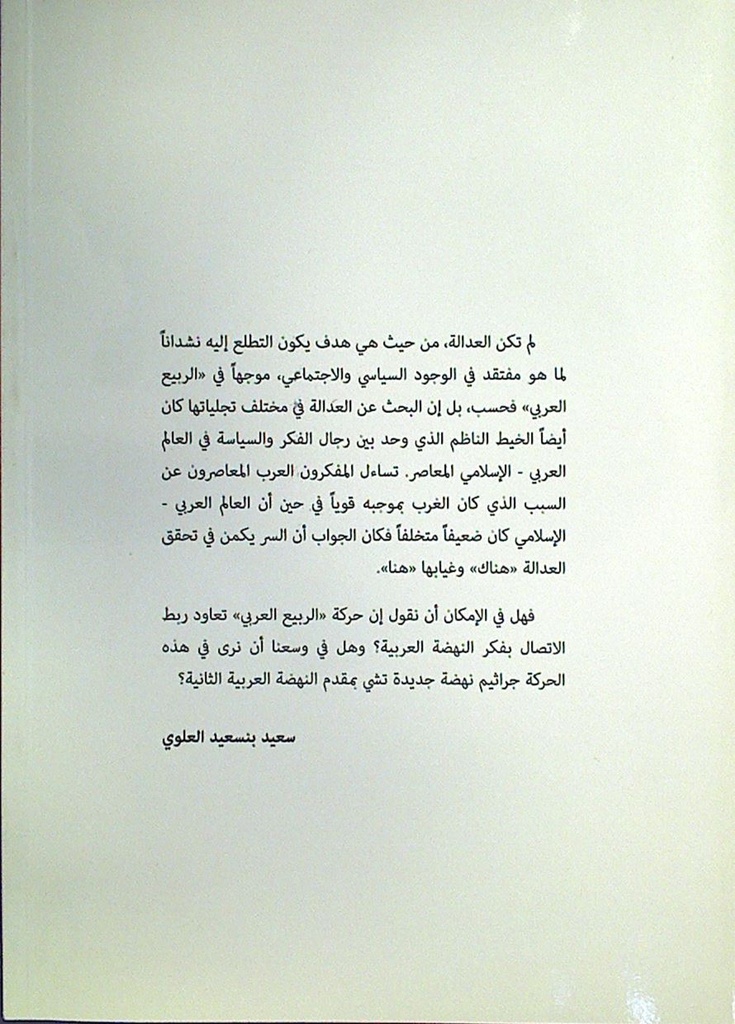 لم تكن العدالة، من حيث هي هدف يكون التطلع إليه نشداناً
لما هو مفتقد في الوجود السياسي والاجتماعي، موجهاً في «الربيع
العربي» فحسب، بل إن البحث عن العدالة في مختلف تجلياتها كان
أيضاً الخيط الناظم الذي وحد بين رجال الفكر والسياسة في العالم
العربي - الإسلامي المعاصر. تساءل المفكرون العرب المعاصرون عن
السبب الذي كان الغرب بموجبه قوياً في حين أن العالم العربي -
الإسلامي كان ضعيفاً متخلفاً فكان الجواب أن السر يكمن في تحقق
العدالة «هناك» وغيابها «هنا».
فهل في الإمكان أن نقول إن حركة «الربيع العربي» تعاود ربط
الاتصال بفكر النهضة العربية؟ وهل في وسعنا أن نرى في هذه
الحركة جراثيم نهضة جديدة تشي بمقدم النهضة العربية الثانية؟
سعيد بنسعيد العلوي